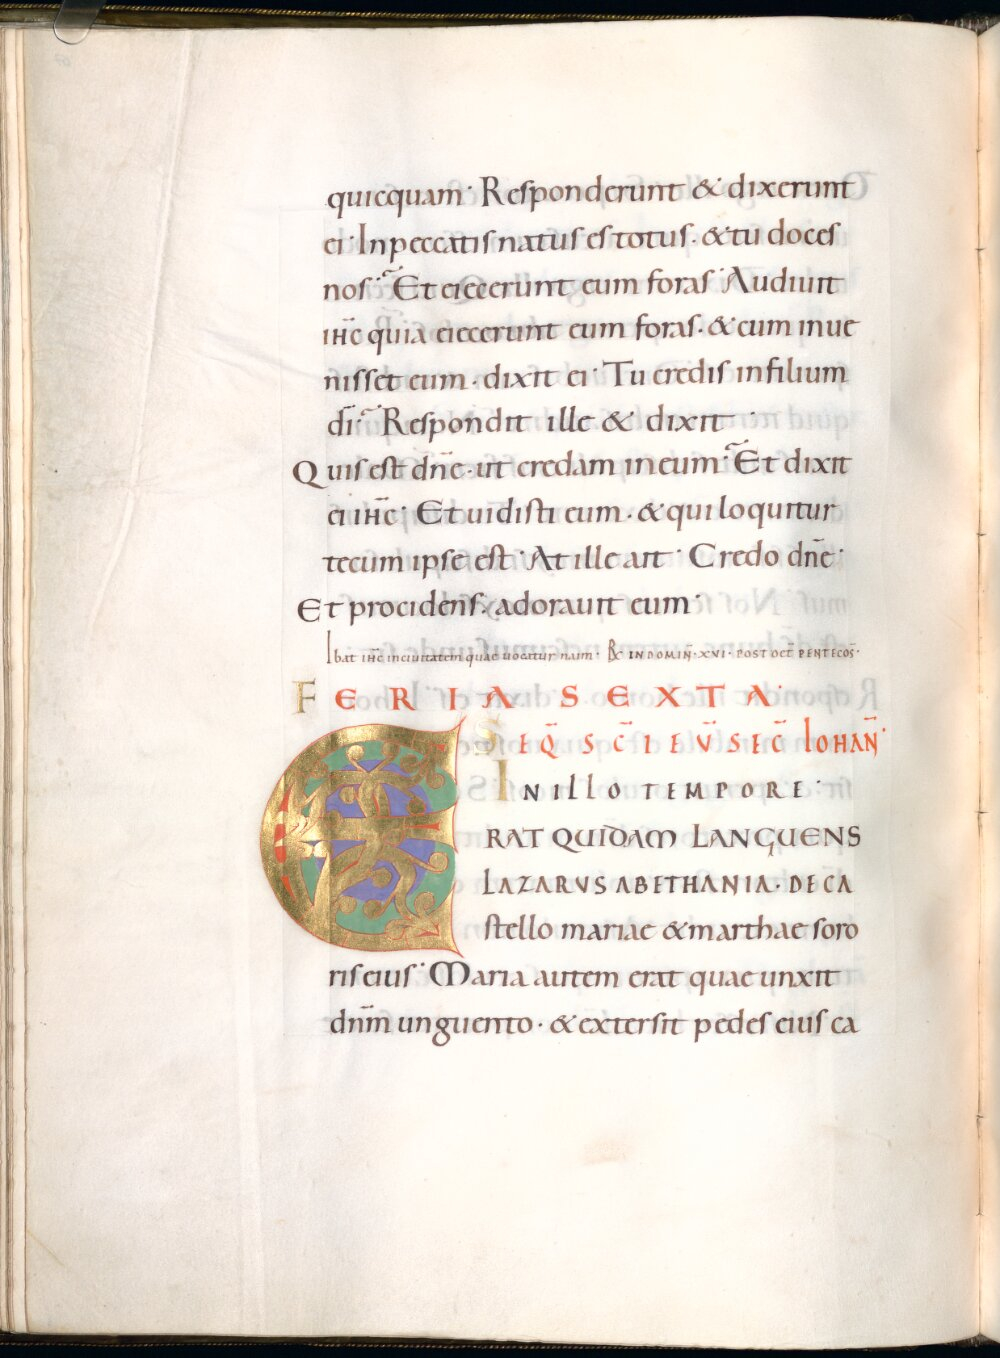 quicquam· Responderunt & dixerunt
ei· In peccatis natus es totus· & tu doces
nos? Et eiecerunt eum foras· Audiuit
ihc̄ quia eiecerunt eum foras· & cum inue
nisset eum· dixit ei· Tu credis in filium
dī? Respondit ille & dixit·
Quis est dn̄e· ut credam in eum? Et dixit
ei ihc̄· Et uidisti eum· & qui loquitur
tecum ipse est· At ille ait· Credo dn̄e·
Et procidens· adorauit eum·
Ibat ihc̄ in ciuitatem quae uocatur naim· IN DOMIN̄· XVI· POST OCT̄ PENTECOS̄·
FERIA SEXTA·
SEQ̄ SC̄I EV̄ SEC̄ IOHAN̄·
IN ILLO TEMPORE·
ERAT QUIDAM LANGUENS
LAZARVS A BETHANIA· DE CA
stello mariae & marthae soro
ris eius· Maria autem erat quae unxit
dn̄m unguento· & extersit pedes eius ca